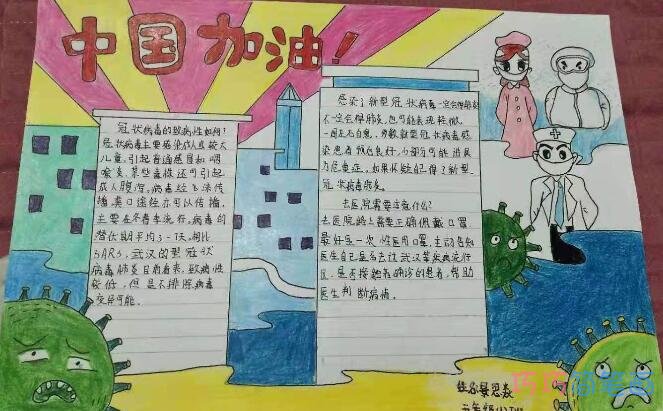 中国加油！
冠状病毒的致病性如何？
冠状病毒主要感染成人或较大
儿童，引起普通感冒和咽
喉炎，某些毒株还可引起
成人腹泻。病毒经飞沫传
播，粪口途径亦可以传播。
主要在冬春季流行，病毒的
潜伏期平均3-7天。相比
SARS，武汉的型冠状
病毒肺炎目前看来，致病性
较低，但是不排除病毒
变异可能。
感染了新型冠状病毒一定会得肺炎
不一定会得肺炎，也可能表现轻微，
一周左右自愈，多数新型冠状病毒感
染患者预后良好，少部分可能进展
为危重症。如果怀疑已得了新型
冠状病毒肺炎。
去医院需要注意什么？
去医院路上需要正确佩戴口罩，
最好是一次性医用口罩，主动告知
医生自己是否去过武汉等疾病流行
区，是否接触有确诊的患者，帮助
医生判断病情。